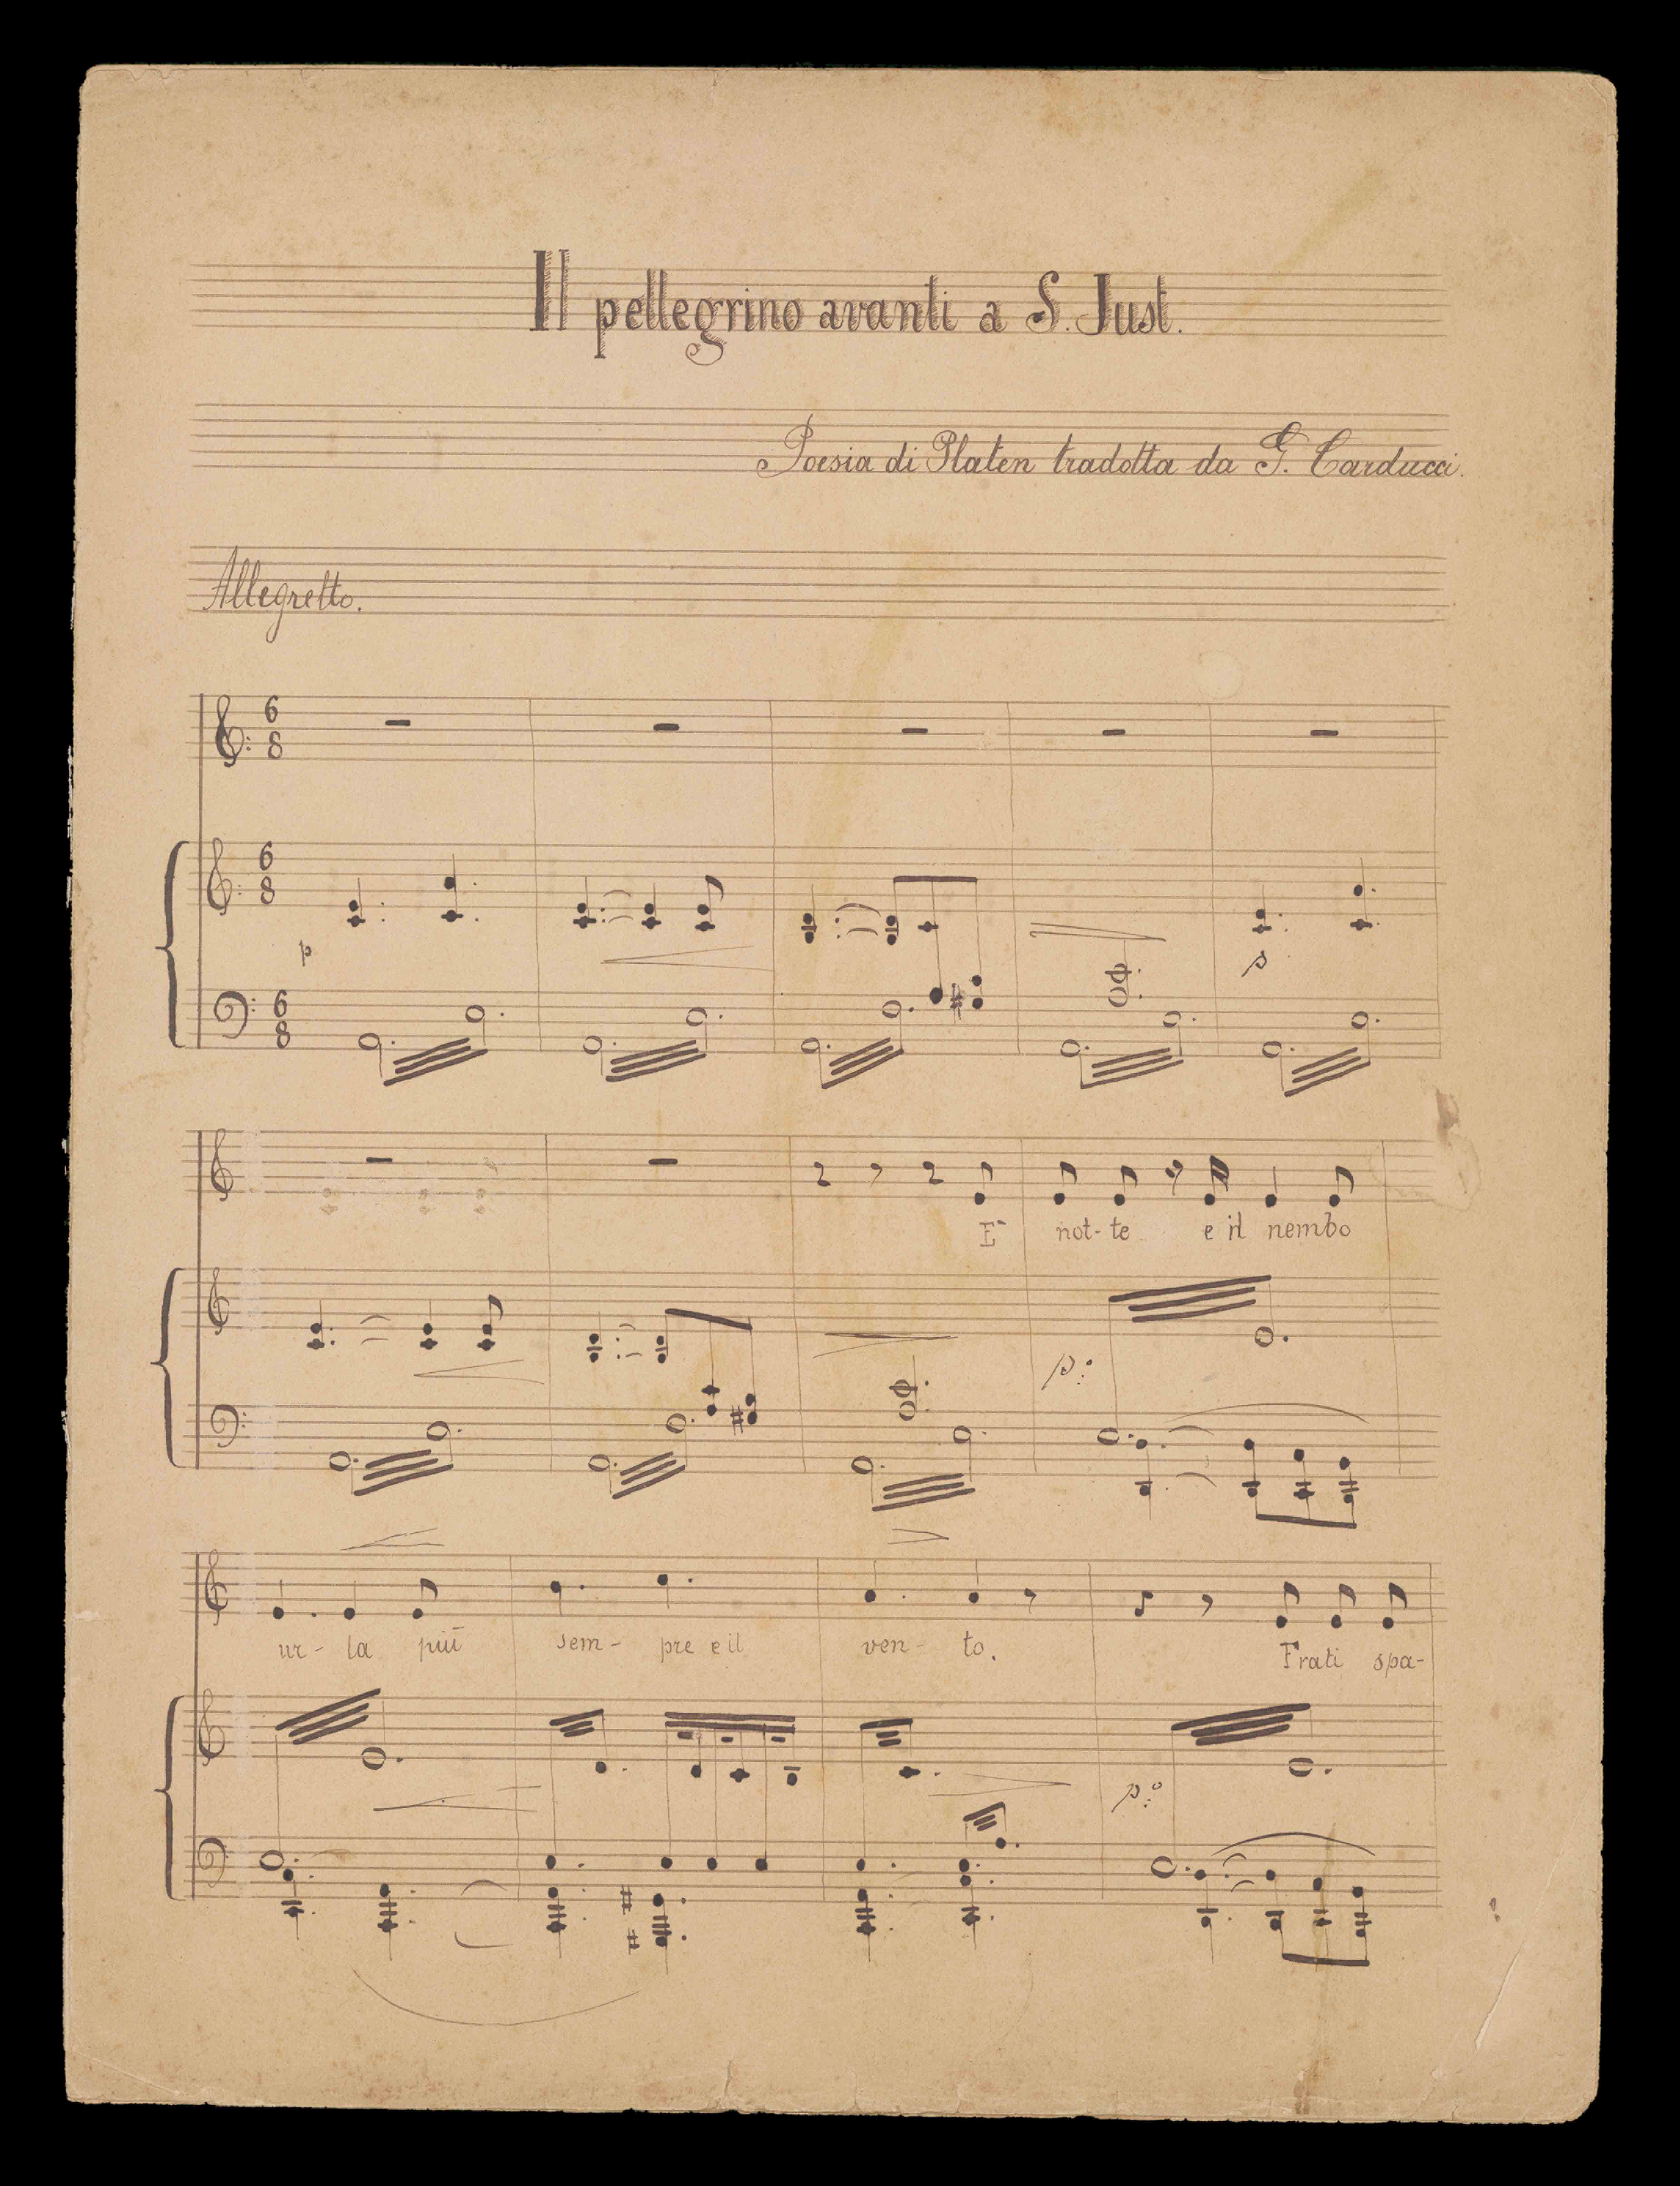 Il pellegrino avanti a S. Just.
Poesia di Platen tradotta da G. Carducci.
Allegretto.
6 8
6 8
p p
6 8
E` not-te e il nembo
p:
ur-la più sem-pre e il ven-to. Frati spa-
p: